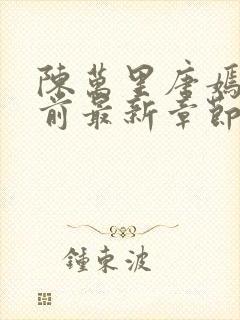 陳萬里唐嫣
前最新章節
鍾東波